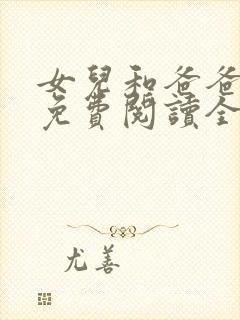 女兒和爸爸
免費閱讀全
尤善